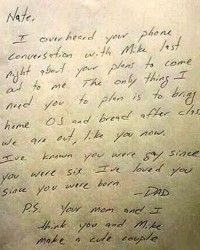 Nate,
I overheard your phone
conversation with Mike last
night about your plans to come
out to me. The only thing I
need you to plan is to bring
home OJ and bread after class
We are out, like you now.
I've known you were gay since
you were six. I've loved you
since you were born.
-DAD
P.S. Your mom and I
think you and Mike
make a cute couple